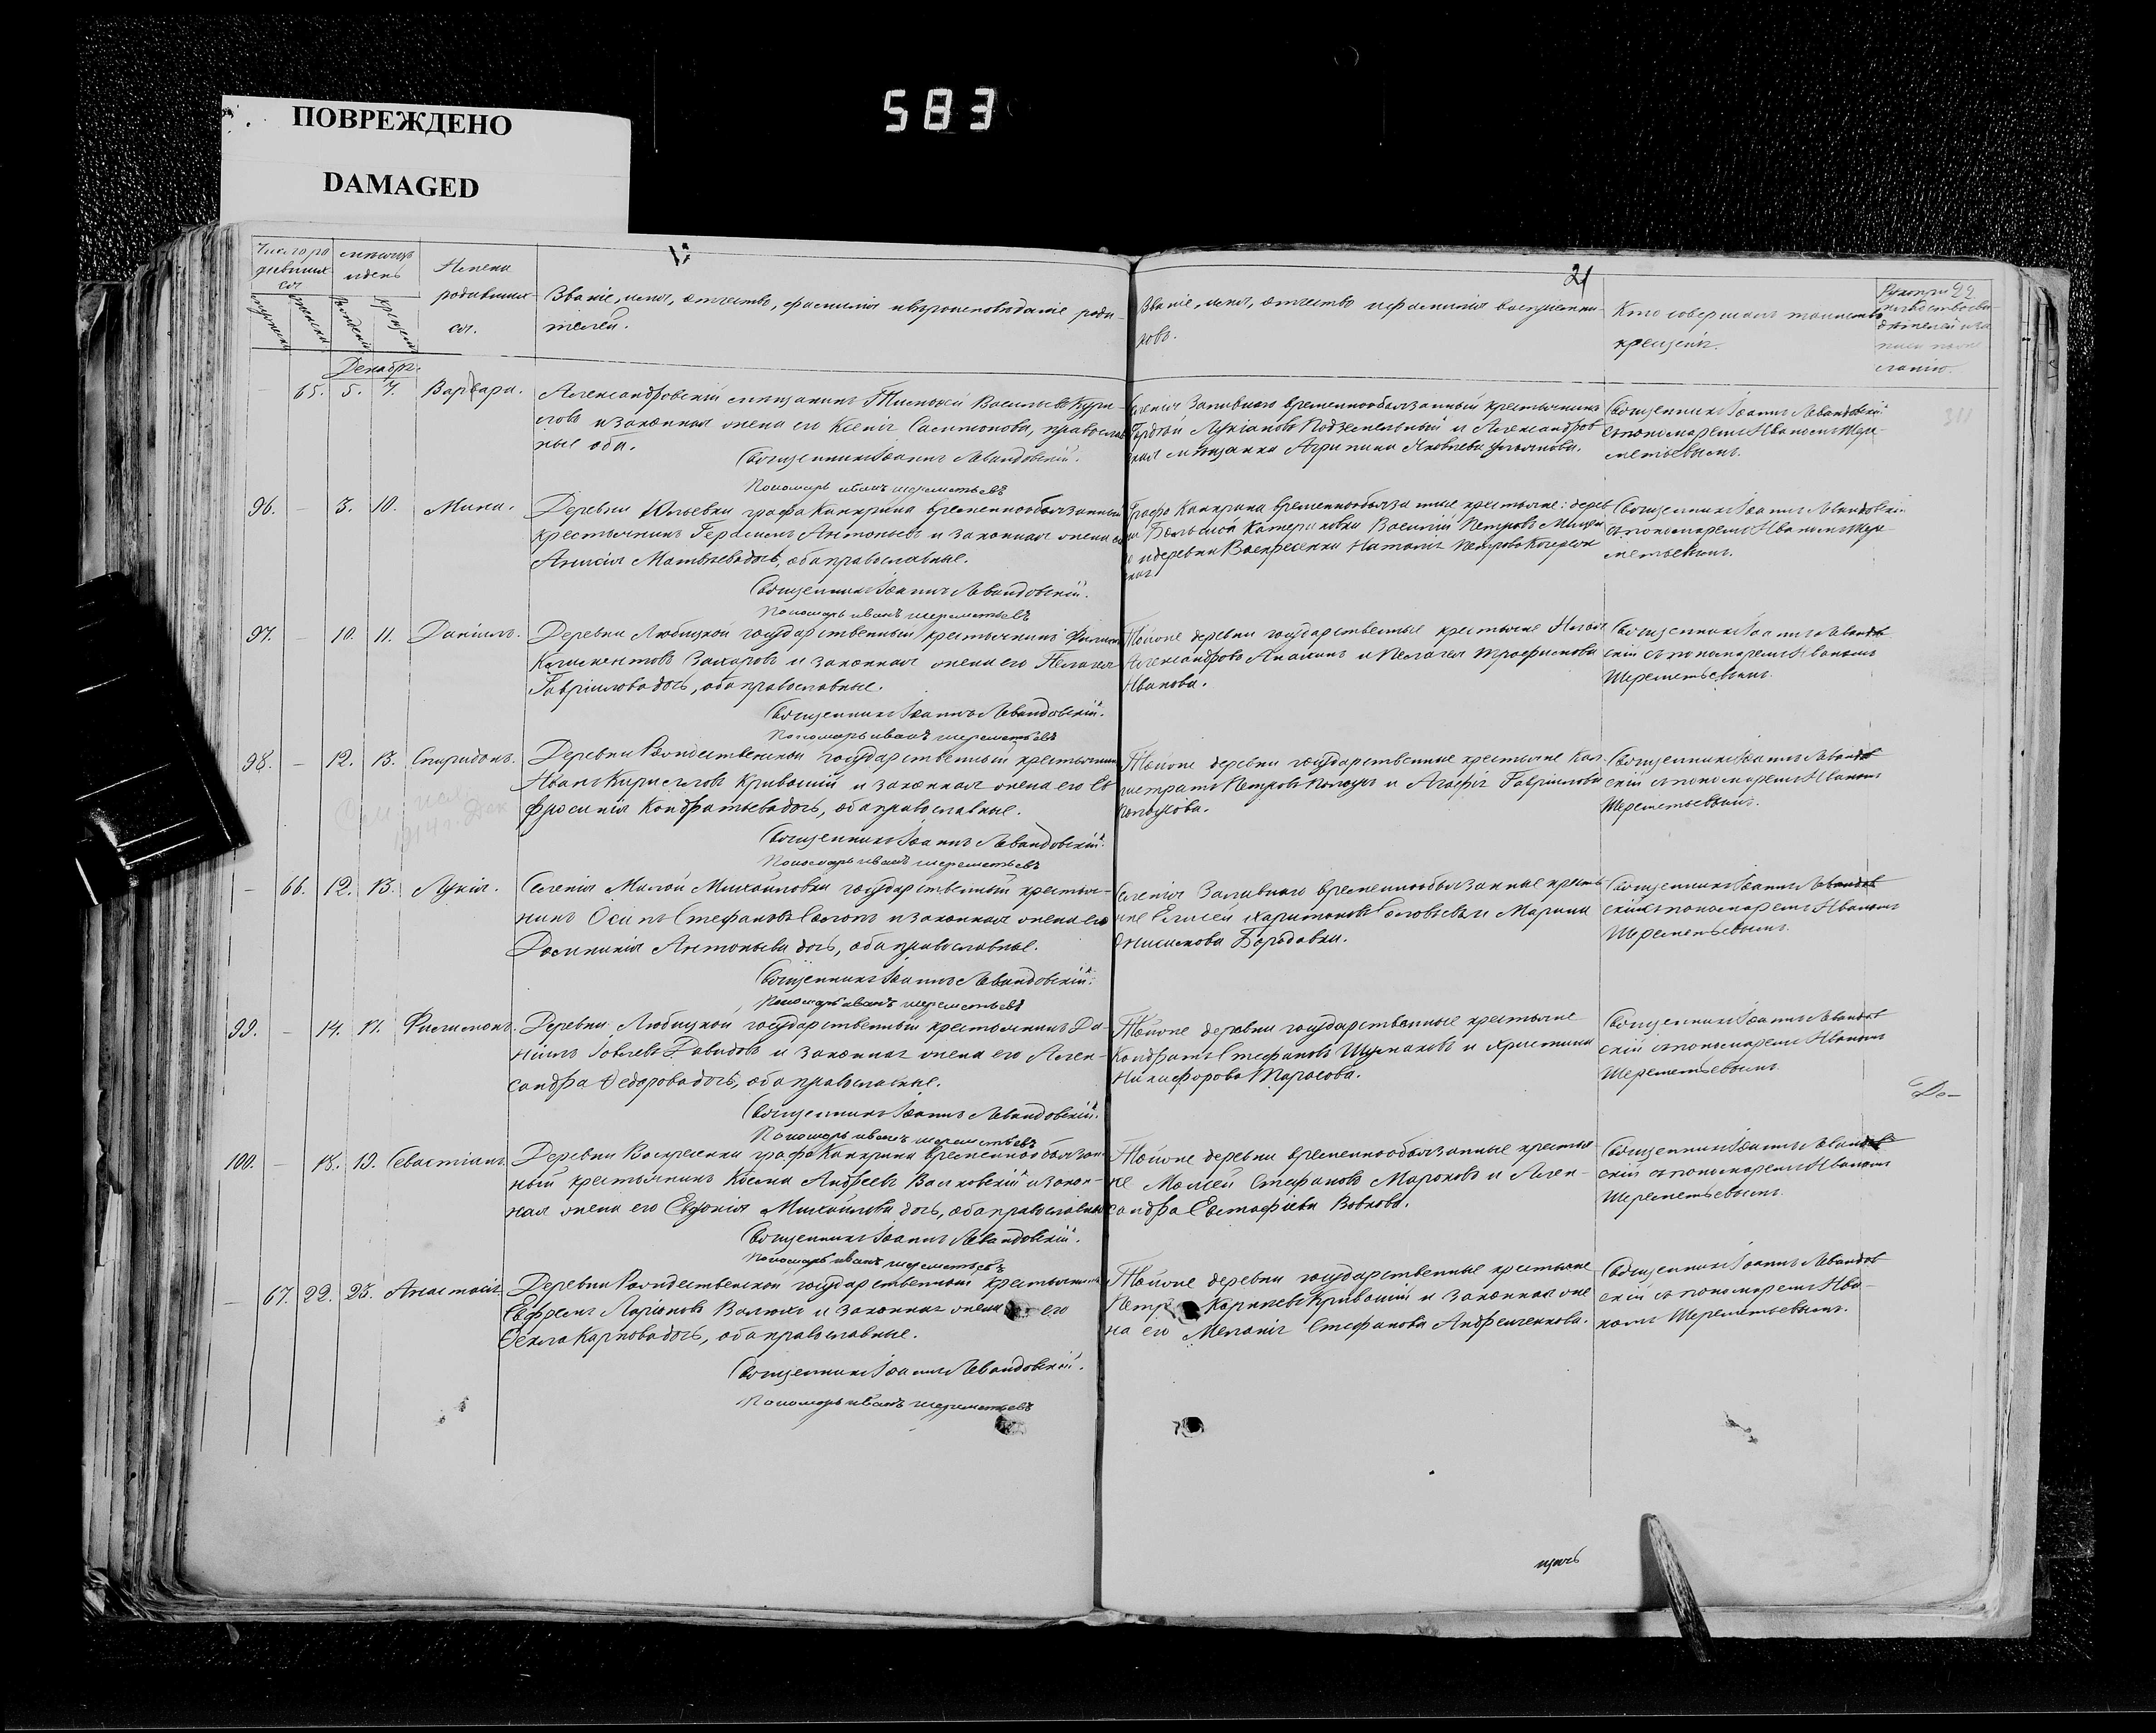 583
ПОВРЕЖДЕНО
DAMAGED
21
Имена
родивших-
ся.
Званіе, имя, отчество, фамилія и вѣроисповѣданіе роди-
телей.
Званіе, имя, отчество и фамилія воспріемни-
ковъ.
Кто совершалъ таинство
крещенія.
Декабрь.
65. 5. 7. Варвара.
Александровскій мѣщанинъ Тимофей Васильевъ
и законная жена его Ксенія Самсонова, православ-
ные оба.
Священникъ Іоаннъ Левандовскій.
Пономарь иванъ шереметьевъ
Селенія Заливнаго временнообязанный крестьянинъ
Гордѣй Лукіановъ и Александров-
ская мѣщанка Агрипина Яковлева
Священникъ Іоаннъ Левандовскій
съ пономаремъ Иваномъ Шере-
метьевымъ.
96. 3. 10. Мина.
Деревни Юльевки графа Канкрина временнообязанный
крестьянинъ Герасимъ Антоньевъ и законная жена его
Анисія Матвѣева дочь, оба православные.
Священникъ Іоаннъ Левандовскій.
Пономарь иванъ шереметьевъ
Графа Канкрина временнообязанные крестьяне: дерев
ни Большой Катериновки Василій Петровъ
и деревни Воскресенки Наталія Петрова
Священникъ Іоаннъ Левандовскій
съ пономаремъ Иваномъ Шере-
метьевымъ.
97. 10. 11. Даніилъ.
Деревни Любицкой государственный крестьянинъ
Климентовъ Захаровъ и законная жена его Пелагея
Гавріилова дочь, оба православные.
Священникъ Іоаннъ Левандовскій.
Пономарь иванъ шереметьевъ
Тойже деревни государственные крестьяне
Александровъ и Пелагея Трофимова
Иванова.
Священникъ Іоаннъ Левандов
скій съ пономаремъ Иваномъ
Шереметьевымъ.
98. 12. 13. Спиридонъ.
Деревни Рождественской государственный крестьянинъ
Иванъ Кирилловъ Кривошій и законная жена его Ев
фросинія Кондратьева дочь, оба православные.
Священникъ Іоаннъ Левандовскій.
Пономарь иванъ шереметьевъ
Тойже деревни государственные крестьяне Кал-
истратъ Петровъ и Агафія Гавріилова
Священникъ Іоаннъ Левандов
скій съ пономаремъ Иваномъ
Шереметьевымъ.
66. 12. 13. Лукія.
Селенія Малой Михайловки государственный крестья-
нинъ Осипъ Стефановъ и законная жена его
Домникія Антоньева дочь, оба православные.
Священникъ Іоаннъ Левандовскій.
Пономарь иванъ шереметьевъ
Селенія Заливнаго временнообязанные кресть
яне Елисей Харитоновъ Соловьевъ и Марина
Онисимова Бородавка.
Священникъ Іоаннъ Левандов
скій съ пономаремъ Иваномъ
Шереметьевымъ.
99. 14. 17. Филимонъ.
Деревни Любицкой государственный крестьянинъ Да-
ніилъ Іовлевъ Давидовъ и законная жена его Алек-
сандра Ѳедорова дочь, оба православные.
Священникъ Іоаннъ Левандовскій.
Пономарь иванъ шереметьевъ
Тойже деревни государственные крестьяне
Кондратъ Стефановъ Шумаковъ и Христина
Никифорова Тарасова.
Священникъ Іоаннъ Левандов
скій съ пономаремъ Иваномъ
Шереметьевымъ.
100. 18. 19. Севастіанъ.
Деревни Воскресенки графа Канкрина временнообязан-
ный крестьянинъ Косма Андреевъ Валковскій и закон-
ная жена его Евдокія Михайлова дочь, оба православные
Священникъ Іоаннъ Левандовскій.
Пономарь иванъ шереметьевъ
Тойже деревни временнообязанные крестья
не Моисей Стефановъ Мароховъ и Алек-
сандра Евстафіева Вовкова.
Священникъ Іоаннъ Левандов
скій съ пономаремъ Иваномъ
Шереметьевымъ.
67. 22. 23. Анастасія
Деревни Рождественской государственный крестьянинъ
Ефремъ Ларіоновъ и законная жена его
Ѳекла Карпова дочь, оба православные.
Священникъ Іоаннъ Левандовскій.
Пономарь иванъ шереметьевъ
Тойже деревни государственные крестьяне
Кривошій и законная же
на его Меланія Стефанова Андрейченкова.
Священникъ Іоаннъ Левандов
скій съ пономаремъ Ива-
номъ Шереметьевымъ.